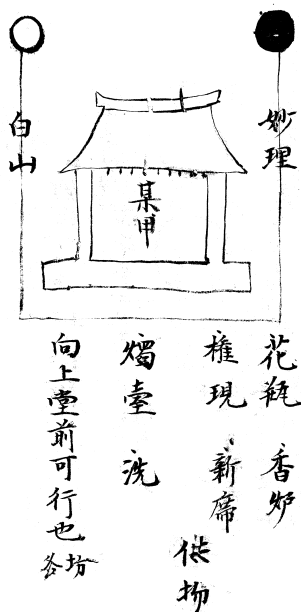 妙理
白山
某甲
花瓶 香炉
権現 新席
供物
燭臺 洗
向上堂前可行也